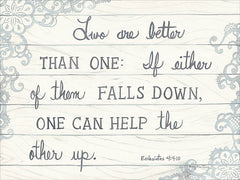 Two are better
THAN ONE: If either
of them FALLS DOWN,
ONE CAN HELP the
other up.
Ecclesiastes 4:9-10